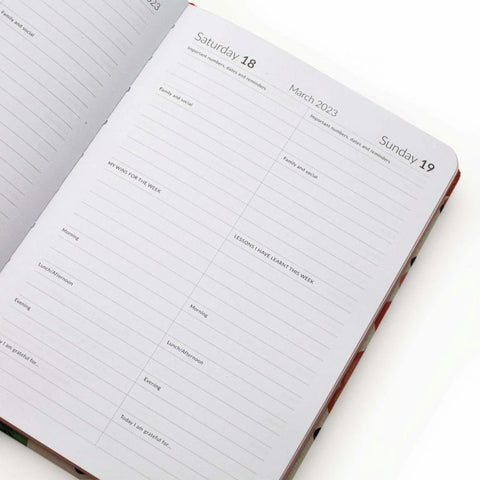 2023
Family and social
Saturday 18
Important numbers, dates and reminders
Family and social
MY WINS FOR THE WEEK
Morning
Lunch/Afternoon
Evening
I am grateful for...
March 2023
Sunday 19
Important numbers, dates and reminders
Family and social
LESSONS I HAVE LEARNT THIS WEEK
Morning
Lunch/Afternoon
Evening
Today I am grateful for...